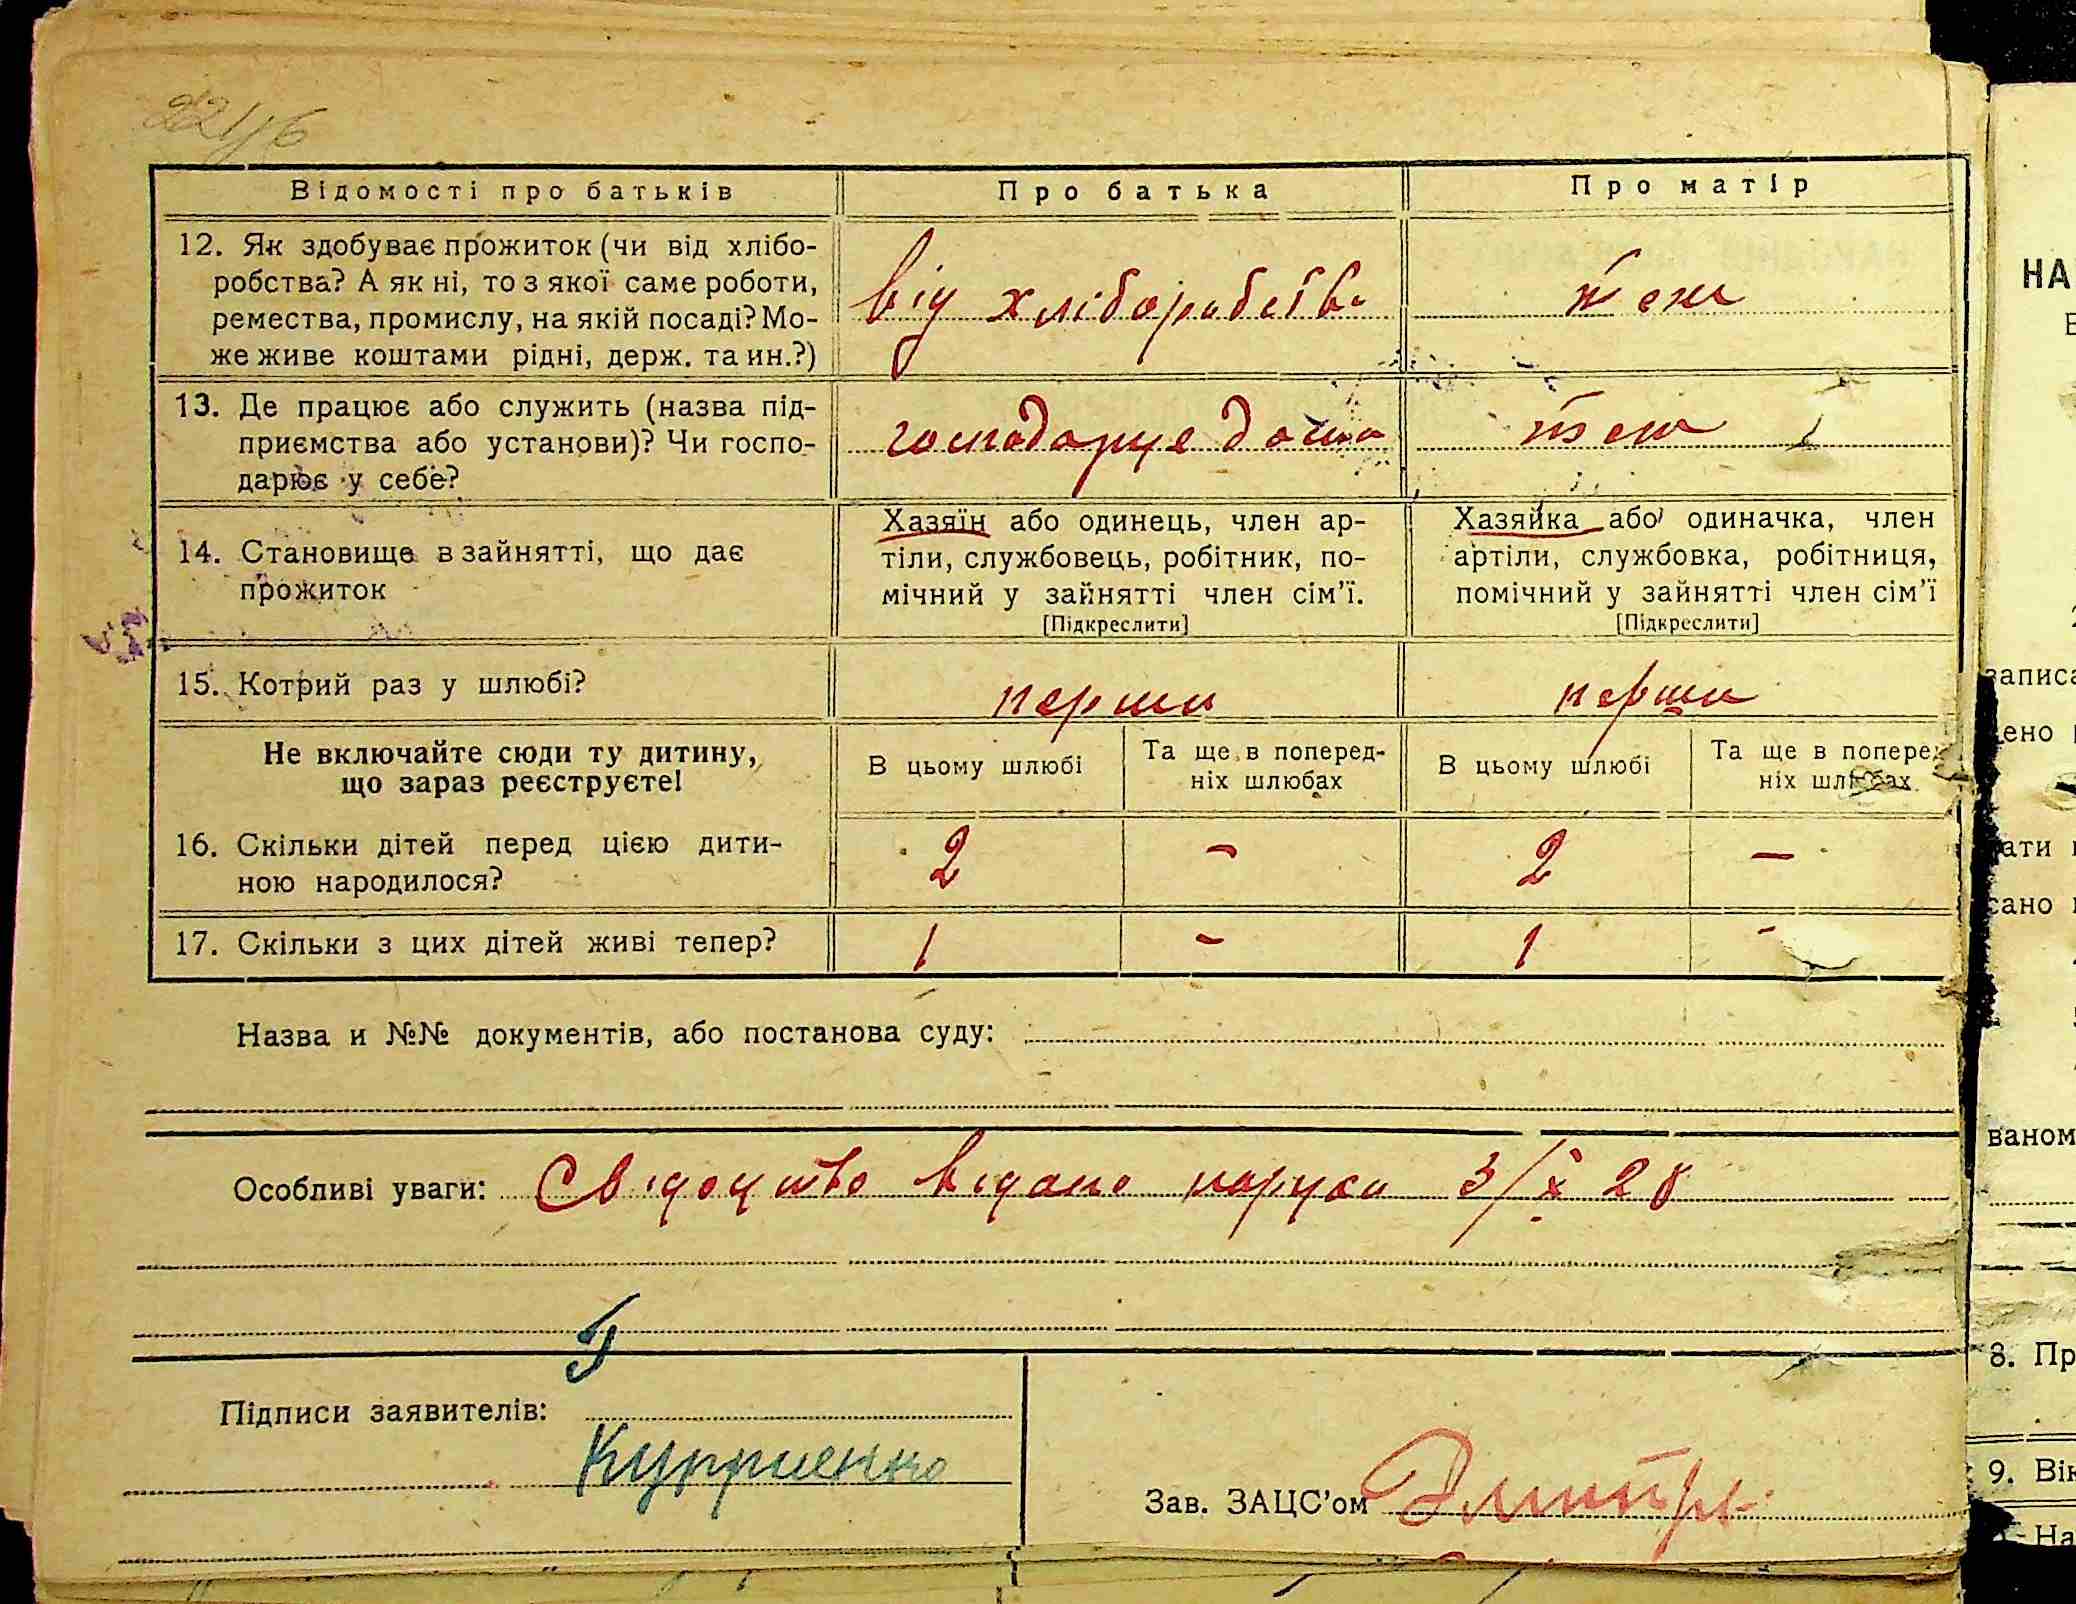 Відомості про батьків
Про батька
Про матір
12. Як здобуває прожиток (чи від хлібо-
робства? А як ні, то з якої саме роботи,
ремества, промислу, на якій посаді? Мо-
же живе коштами рідні, держ. та ин.?)
від хліборобства
теж
13. Де працює або служить (назва під-
приємства або установи)? Чи госпо-
дарює у себе?
господарце дома
теж
14. Становище в зайнятті, що дає
прожиток
Хазяїн або одинець, член ар-
тіли, службовець, робітник, по-
мічний у зайнятті член сім'ї.
[Підкреслити]
Хазяйка або одиначка, член
артіли, службовка, робітниця,
помічний у зайнятті член сім'ї
[Підкреслити]
15. Котрий раз у шлюбі?
перши
перши
Не включайте сюди ту дитину,
що зараз реєструєте!
В цьому шлюбі
Та ще в поперед-
ніх шлюбах
В цьому шлюбі
Та ще в попере
ніх шлюбах
16. Скільки дітей перед цією дити-
ною народилося?
2 - 2 -
17. Скільки з цих дітей живі тепер?
1 - 1 -
Назва и №№ документів, або постанова суду:
Особливі уваги: Свідоцтво видано наруки 3/X 28
Підписи заявителів:
Зав. ЗАЦС'ом
НА
записа
ати
сано
ваном
8. Пр
9. Вік
На